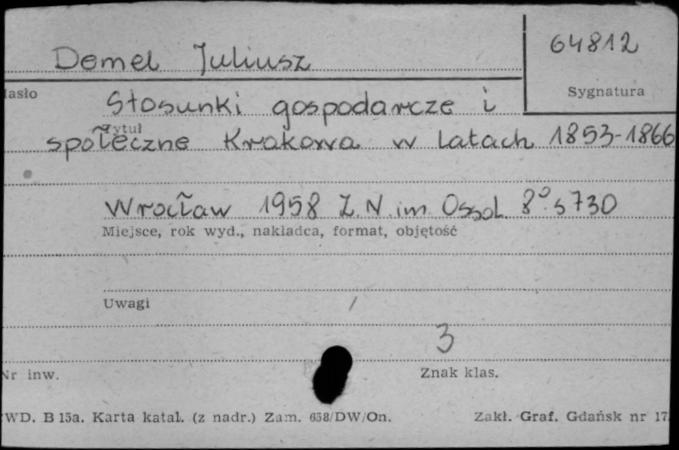 64812
Demel Juliusz
Hasło
Sygnatura
Stosunki gospodarcze i
Tytuł
społeczne Krakowa w latach 1853-1866
Wrocław 1958 Z.N. im. Ossol. 8° s 730
Miejsce, rok wyd., nakładca, format, objętość
Uwagi
3
Nr inw.
Znak klas.
WD. B 15a. Karta katal. (z nadr.) Zam. 658/DW/On.
Zakł. Graf. Gdańsk nr 17